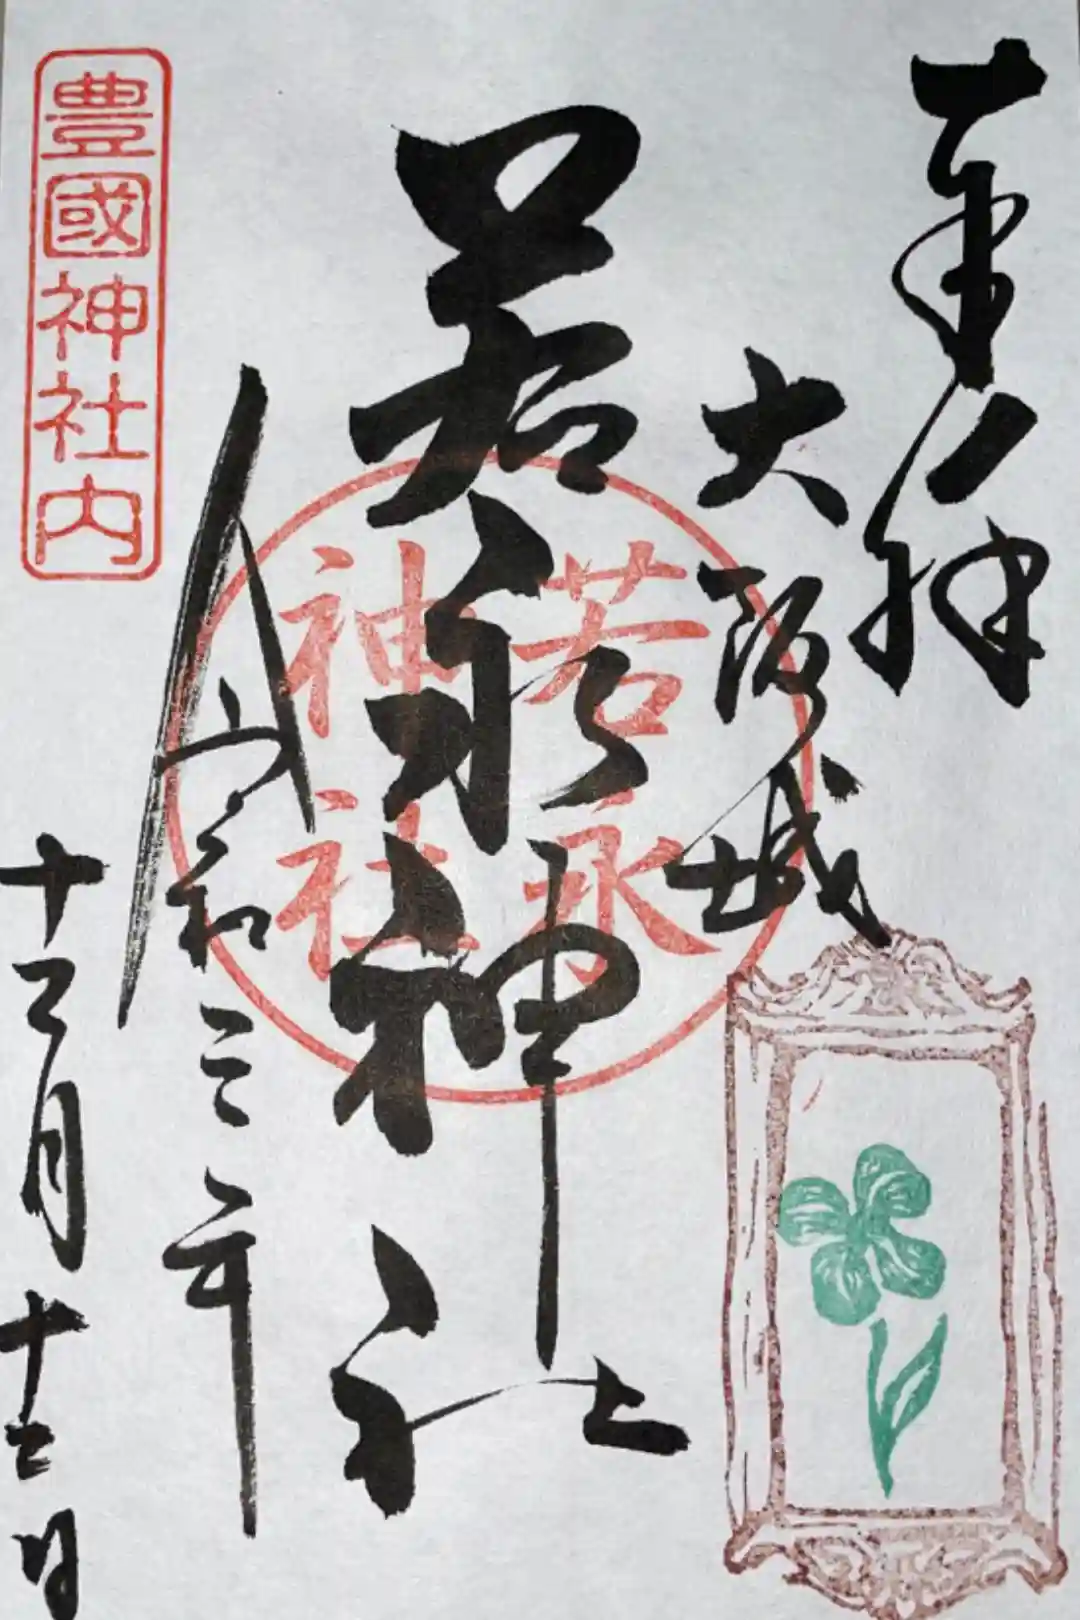 奉拝
大阪城
若永神社
若永
神社
令和三年
十二月十三日
豊國神社内